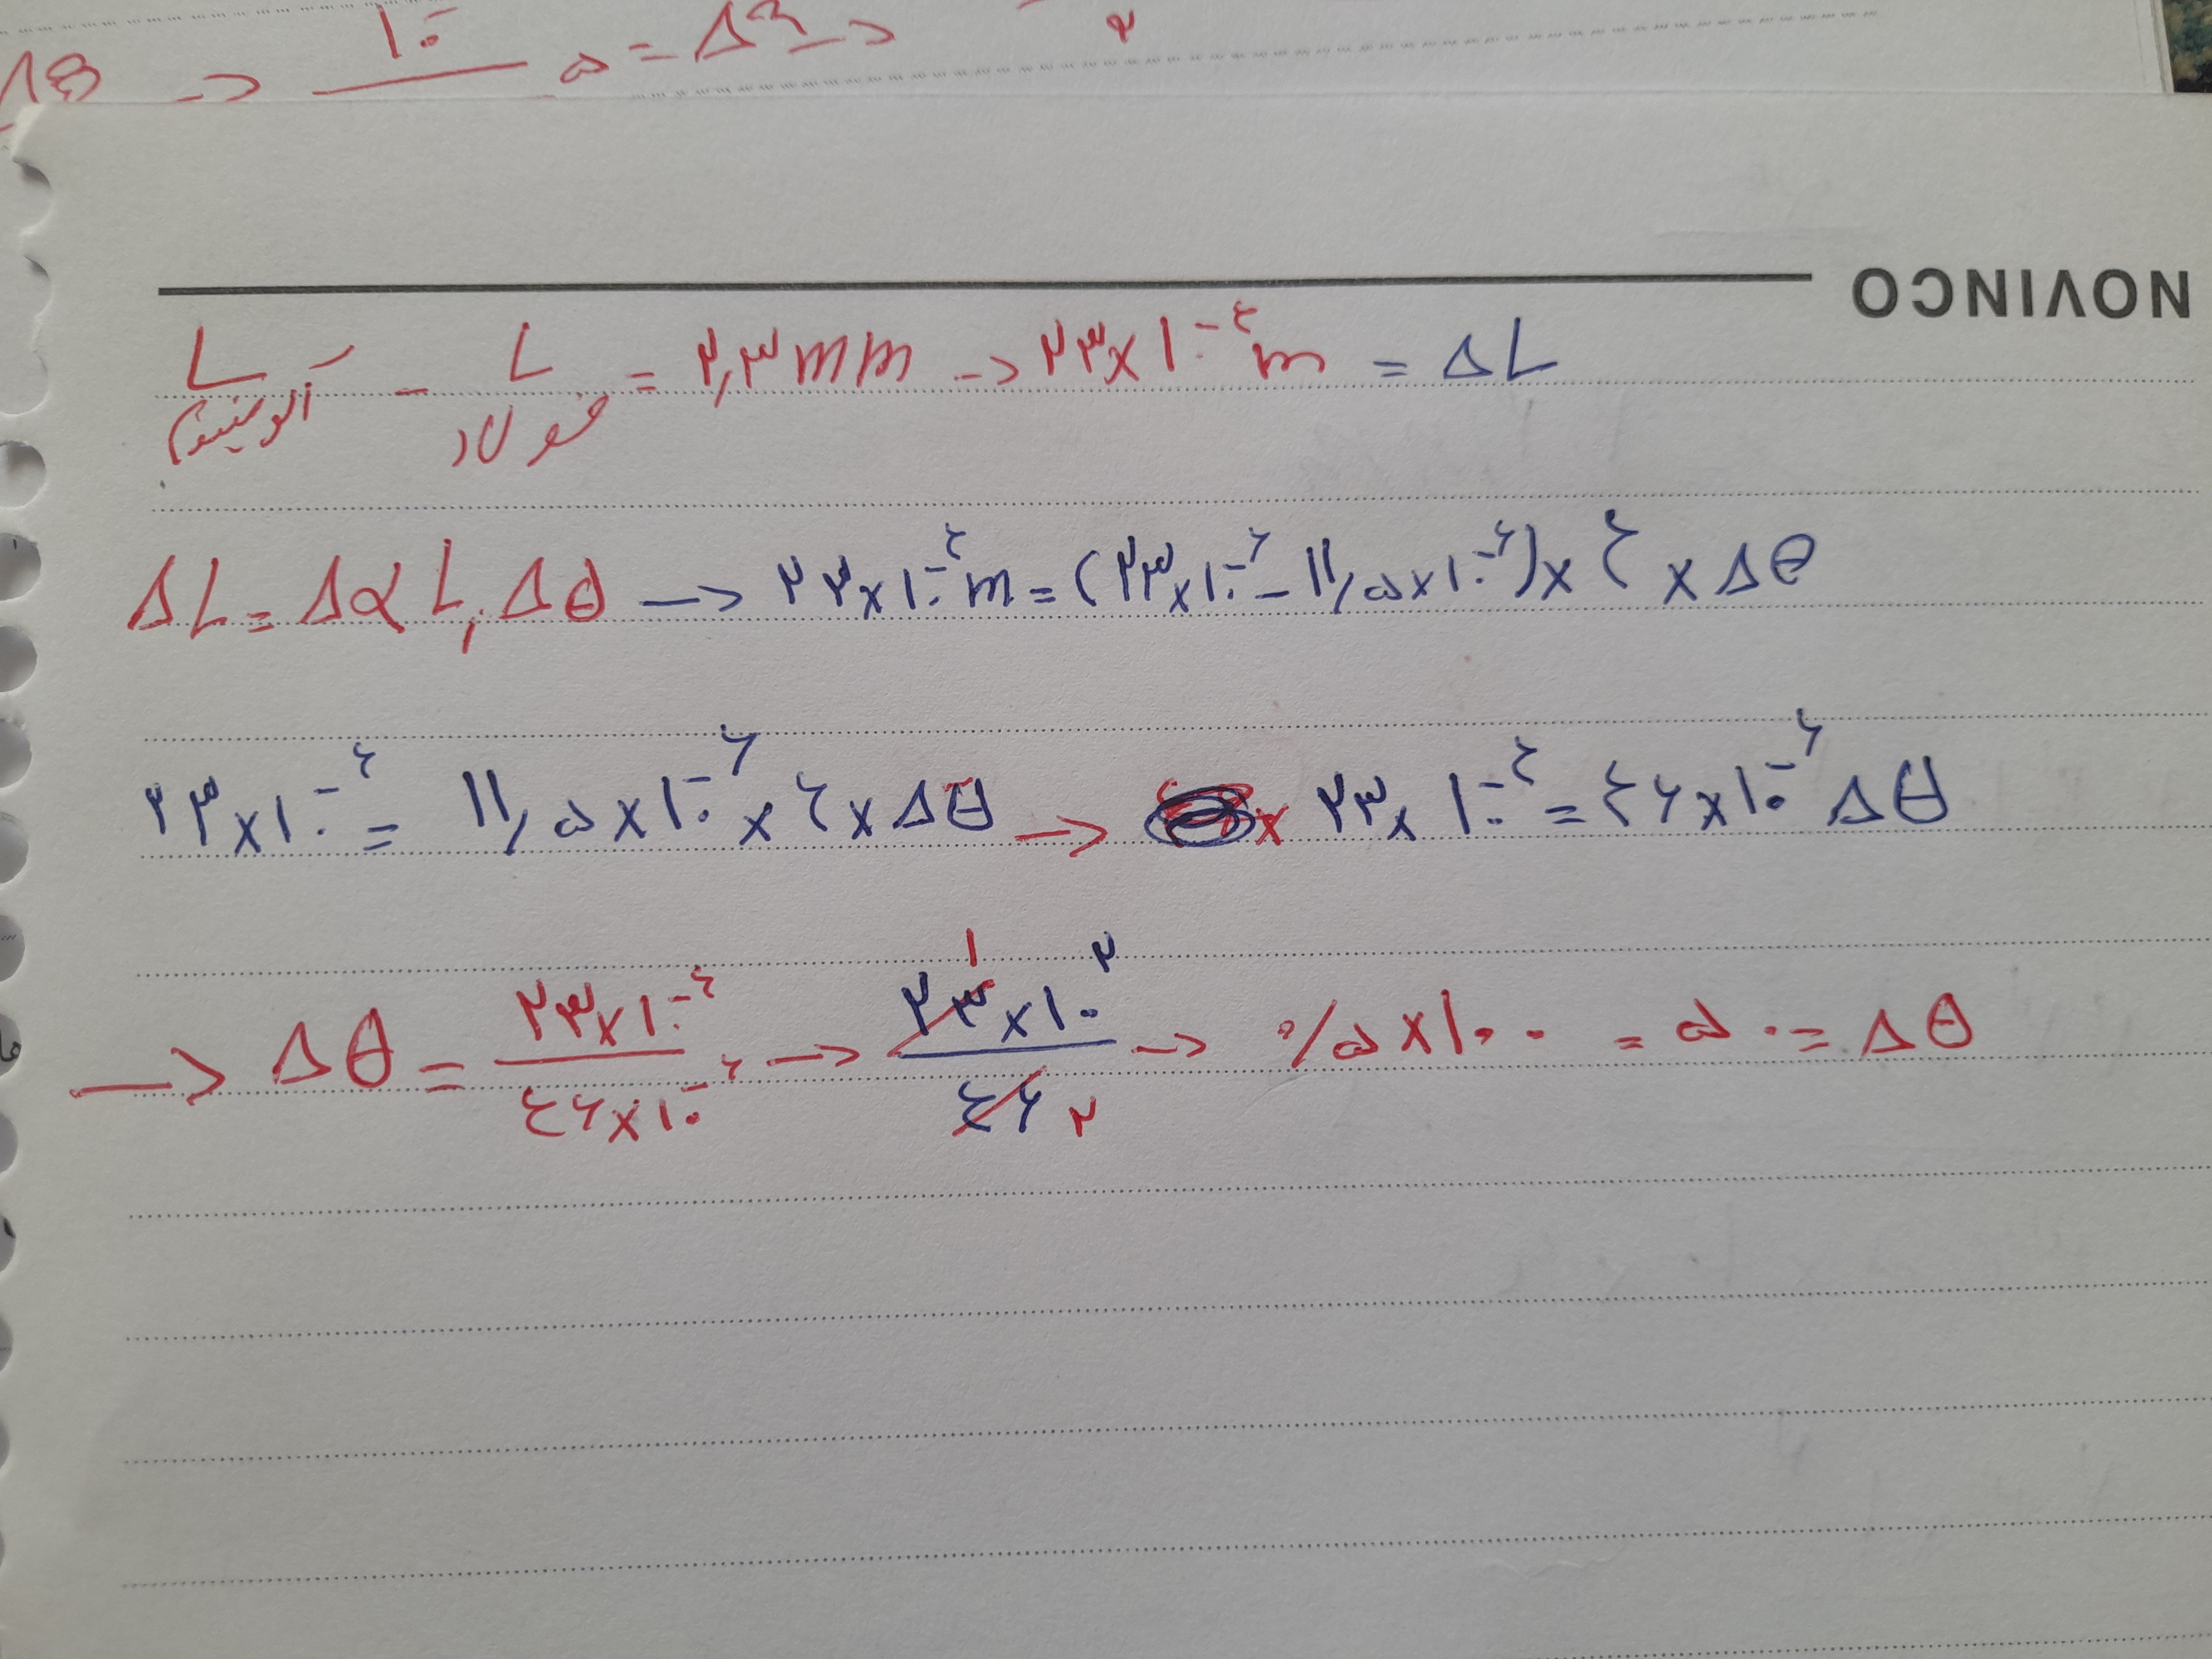 ۱۰⁻ ۵ = Δ →
۲
NOVINCO
L آلومینیوم - L فولاد = ۲٫۳ mm → ۲۳×۱۰⁻⁴ m = ΔL
ΔL = Δα L₁ Δθ → ۲۳×۱۰⁻⁴ m = (۲۳×۱۰⁻⁶ - ۱۱٫۵×۱۰⁻⁶)×۴×Δθ
۲۳×۱۰⁻⁴ = ۱۱٫۵×۱۰⁻⁶×۴×Δθ → × ۲۳×۱۰⁻⁴ = ۴۶×۱۰⁻⁶ Δθ
→ Δθ = ۲۳×۱۰⁻⁴ / ۴۶×۱۰⁻⁶ → ۲۳ ۱ ×۱۰² / ۴۶ ۲ → ۰٫۵×۱۰۰ = ۵۰ = Δθ